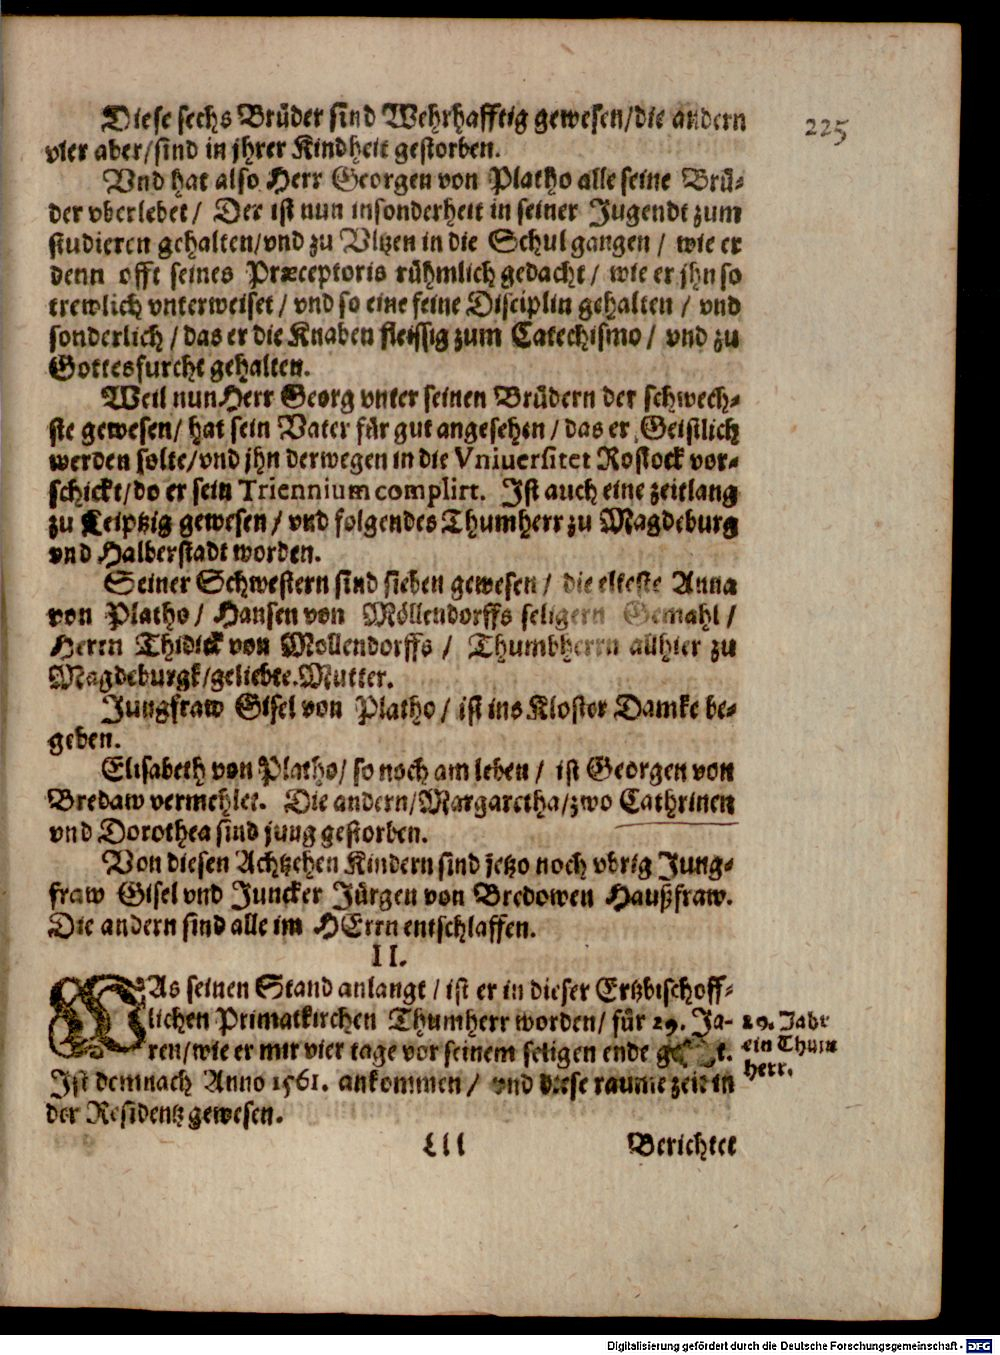 225
Diese sechs Brüder sind Wehrhafftig gewesen/die andern
vier aber/sind in jhrer Kindheit gestorben.
Vnd hat also Herr Georgen von Platho alle seine Brü-
der vberlebet/ Der ist nun insonderheit in seiner Jugendt zum
studieren gehalten/vnd zu Vltzen in die Schul gangen / wie er
denn offt seines Præceptoris rühmlich gedacht / wie er jhn so
trewlich vnterweiset / vnd so eine feine Disciplin gehalten / vnd
sonderlich / das er die Knaben fleissig zum Catechismo / vnd zu
Gottesfurcht gehalten.
Weil nun Herr Georg vnter seinen Brüdern der schwech-
ste gewesen/ hat sein Vater für gut angesehen / das er Geistlich
werden solte/vnd jhn derwegen in die Vniuersitet Rostock vor-
schickt/do er sein Triennium complirt. Ist auch eine zeitlang
zu Leiptzig gewesen / vnd folgendes Thumherr zu Magdeburg
vnd Halberstadt worden.
Seiner Schwestern sind sieben gewesen / die elteste Anna
von Platho / Hansen von Möllendorffs seligern Gemahl /
Herrn Thidick von Mollendorffs / Thumbherrn allhier zu
Magdeburgk/geliebte Mutter.
Jungfraw Gisel von Platho / ist ins Kloster Damke be-
geben.
Elisabeth von Platho/ so noch am leben / ist Georgen von
Bredaw vermehlet. Die andern/Margaretha/zwo Cathrinen
vnd Dorothea sind jung gestorben.
Von diesen Achtzehen Kindern sind jetzo noch vbrig Jung-
fraw Gisel vnd Juncker Jürgen von Bredowen Haußfraw.
Die andern sind alle im HErrn entschlaffen.
II.
WAs seinen Stand anlangt / ist er in dieser Ertzbischoff-
lichen Primatkirchen Thumherr worden/ für 29. Ja-
ren/wie er mir vier tage vor seinem seligen ende
Ist demnach Anno 1561. ankommen / vnd diese raume zeit in
der Residentz gewesen.
29. Jahr
ein Thum
herr.
Lll Berichtet
Digitalisierung gefördert durch die Deutsche Forschungsgemeinschaft - DFG